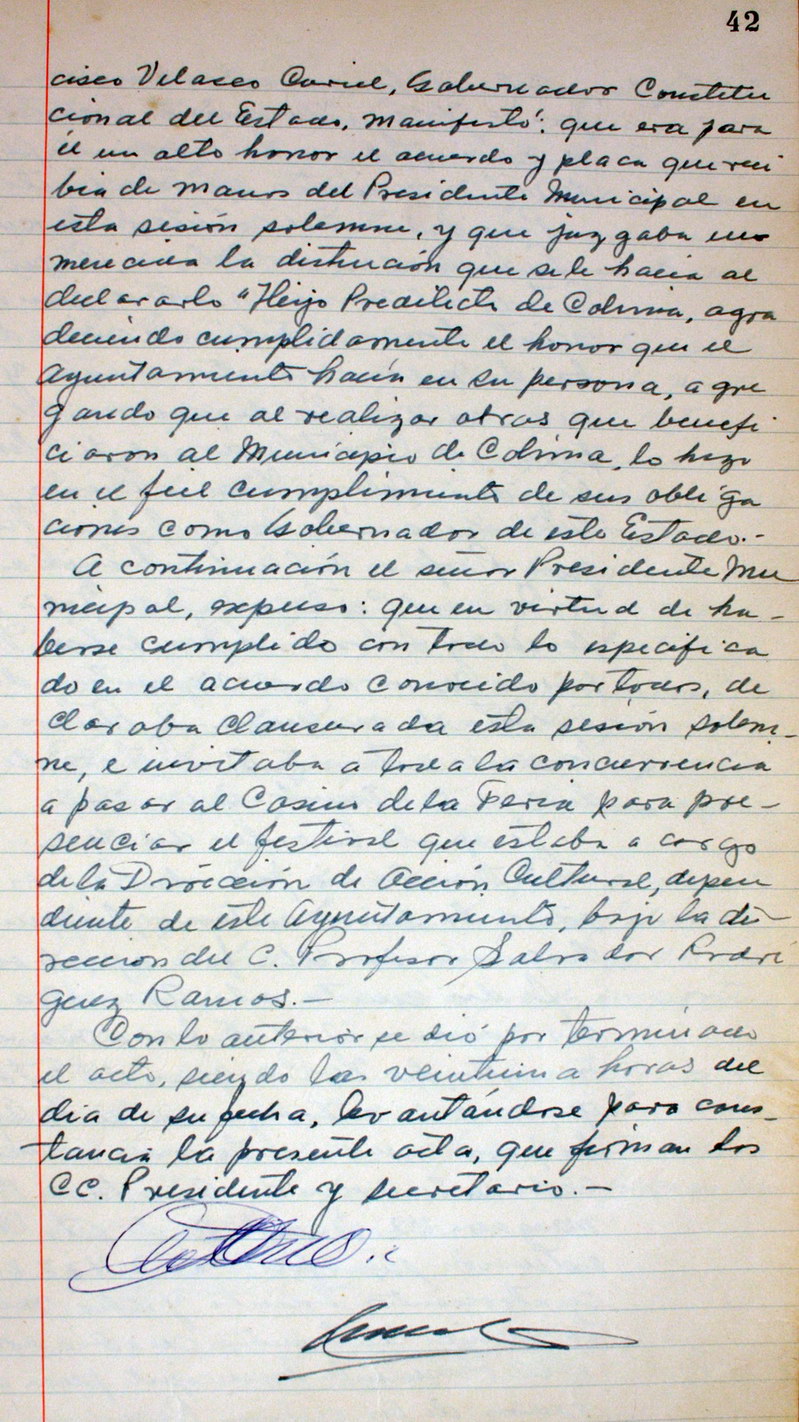 42
cisco Velasco Curiel, Gobernador Constitu
cional del Estado, manifestó: que era para
él un alto honor el acuerdo y placa que reci
bía de manos del Presidente Municipal en
esta sesión solemne, y que juzgaba in
merecida la distinción que se le hacía al
declararlo "Hijo Predilecto de Colima, agra
deciendo cumplidamente el honor que el
Ayuntamiento hacía en su persona, agre
gando que al realizar obras que benefi
ciaron al Municipio de Colima, lo hizo
en el fiel cumplimiento de sus obliga
ciones como Gobernador de este Estado.-
A continuación el señor Presidente Mu
nicipal, expuso: que en virtud de ha-
berse cumplido con todo lo especifica
do en el acuerdo conocido por todos, de
claraba clausurada esta sesión solem-
ne, e invitaba a toda la concurrencia
a pasar al Casino de la Feria para pre-
senciar el festival que estaba a cargo
de la Dirección de Acción Cultural, depen
diente de este Ayuntamiento, bajo la di-
rección del C. Profesor Salvador Rodrí
guez Ramos.-
Con lo anterior se dió por terminado
el acto, siendo las veintiuna horas del
día de su fecha, levantándose para cons-
tancia la presente acta, que firman los
CC. Presidente y secretario.-